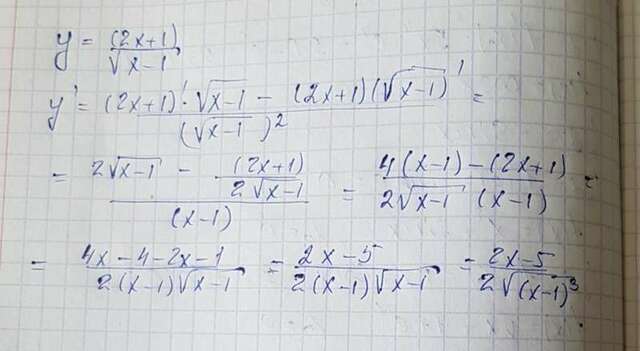 y = (2x+1)/√(x-1)
y' = ((2x+1)'·√(x-1) - (2x+1)(√(x-1))')/(√(x-1))² =
= (2√(x-1) - (2x+1)/(2√(x-1)))/(x-1) = (4(x-1)-(2x+1))/(2√(x-1) (x-1)) =
= (4x-4-2x-1)/(2(x-1)√(x-1)) = (2x-5)/(2(x-1)√(x-1)) = (2x-5)/(2√((x-1)³))